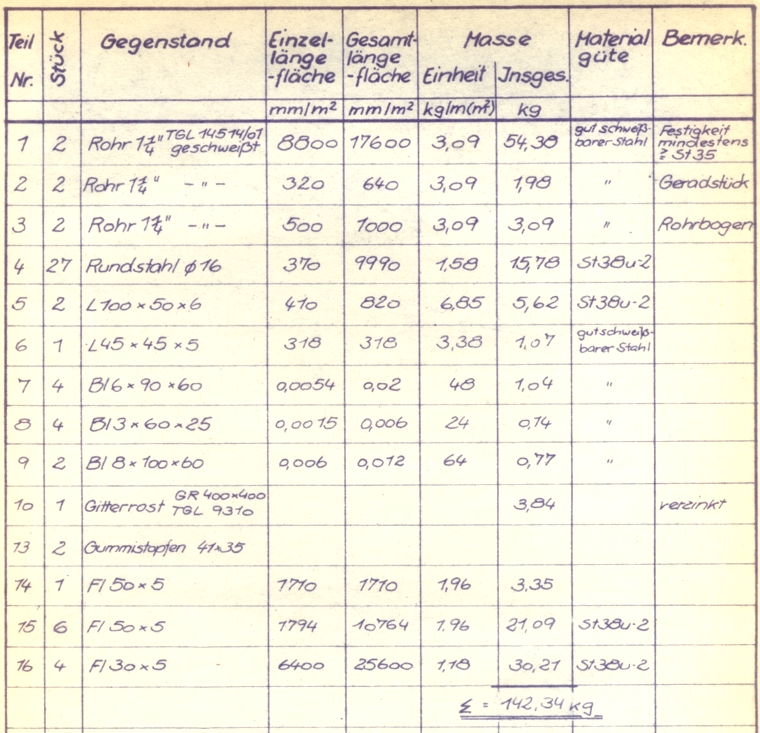 Teil Nr. Stück Gegenstand Einzel-länge -fläche Gesamt-länge -fläche Masse Material güte Bemerk.
Einheit Insges.
mm/m² mm/m² kg/m(m²) kg
1 2 Rohr 1¼" TGL 14514/01 geschweißt 8800 17600 3,09 54,38 gut schweiß-barer Stahl Festigkeit mindestens ≥ St 35
2 2 Rohr 1¼" -"- 320 640 3,09 1,98 " Geradstück
3 2 Rohr 1¼" -"- 500 1000 3,09 3,09 " Rohrbogen
4 27 Rundstahl ϕ16 370 9990 1,58 15,78 St38u-2
5 2 L100×50×6 410 820 6,85 5,62 St38u-2
6 1 L45×45×5 318 318 3,38 1,07 gut schweiß-barer Stahl
7 4 Bl 6×90×60 0,0054 0,02 48 1,04 "
8 4 Bl 3×60×25 0,0015 0,006 24 0,14 "
9 2 Bl 8×100×60 0,006 0,012 64 0,77 "
10 1 Gitterrost GR 400×400 TGL 9310 3,84 verzinkt
13 2 Gummistopfen 41×35
14 1 Fl 50×5 1710 1710 1,96 3,35
15 6 Fl 50×5 1794 10764 1.96 21,09 St38u-2
16 4 Fl 30×5 6400 25600 1,18 30,21 St38u-2
Σ = 142,34 kg